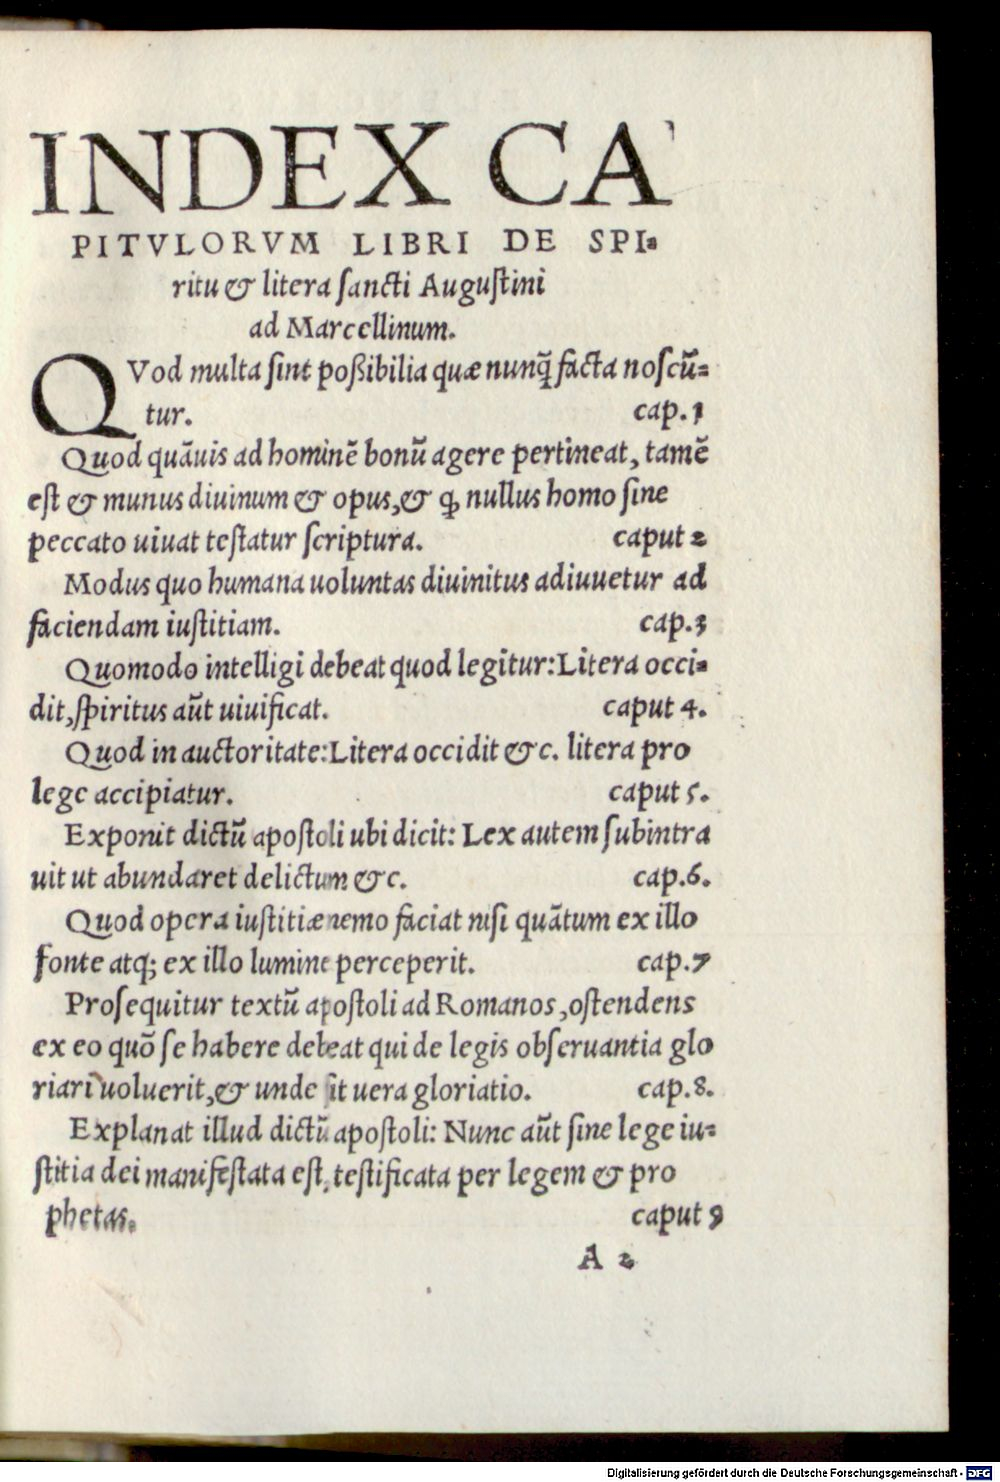 INDEX CA
PITVLORVM LIBRI DE SPI-
ritu & litera sancti Augustini
ad Marcellinum.
QVod multa sint poßibilia quæ nunq̃ facta noscũ-
tur. cap. 1
Quod quãuis ad hominẽ bonũ agere pertineat, tamẽ
est & munus diuinum & opus,& ꝙ nullus homo sine
peccato uiuat testatur scriptura. caput 2
Modus quo humana uoluntas diuinitus adiuuetur ad
faciendam iustitiam. cap.3
Quomodo intelligi debeat quod legitur:Litera occi-
dit,spiritus aũt uiuificat. caput 4.
Quod in auctoritate:Litera occidit &c. litera pro
lege accipiatur. caput 5.
Exponit dictũ apostoli ubi dicit: Lex autem subintra
uit ut abundaret delictum &c. cap.6.
Quod opera iustitiæ nemo faciat nisi quãtum ex illo
fonte atq; ex illo lumine perceperit. cap.7
Prosequitur textũ apostoli ad Romanos,ostendens
ex eo quõ se habere debeat qui de legis obseruantia glo
riari uoluerit,& unde sit uera gloriatio. cap.8.
Explanat illud dictũ apostoli: Nunc aũt sine lege iu-
stitia dei manifestata est, testificata per legem & pro
phetas. caput 9
A 2
Digitalisierung gefördert durch die Deutsche Forschungsgemeinschaft - DFG